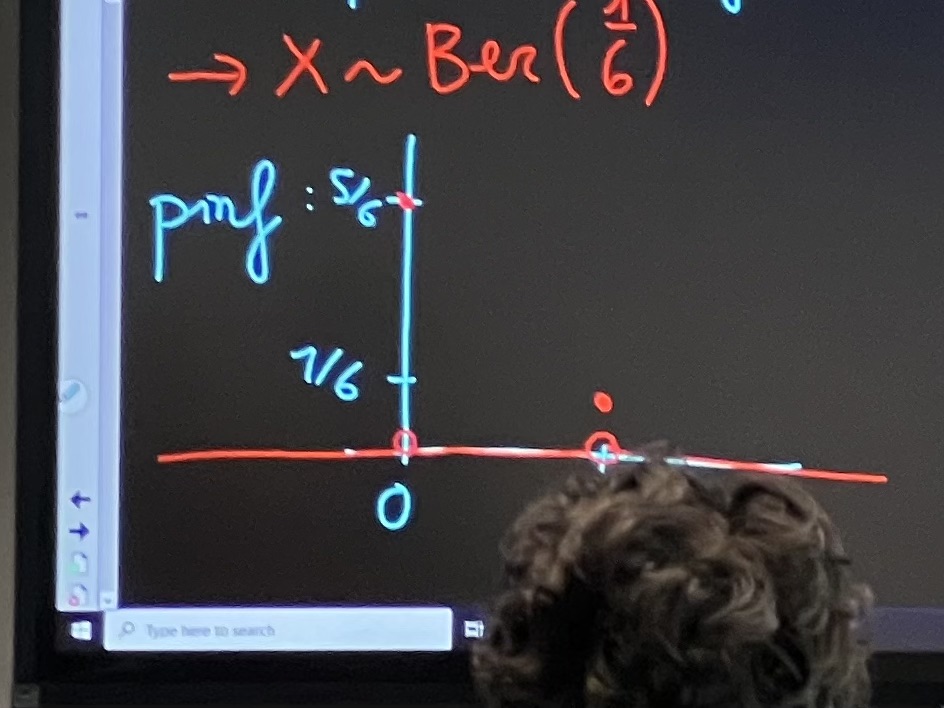 → X ~ Ber(1/6)
pmf : 5/6
1/6
0
Type here to search